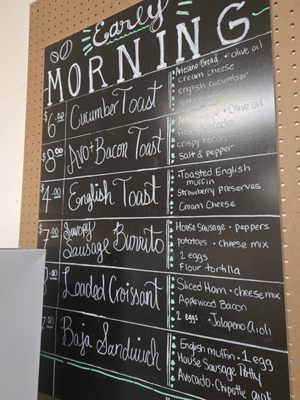 Early
MORNING
$6.00 Cucumber Toast
• Artesano Bread • olive oil
cream cheese
english cucumber
salt &
$8.00 Avo + Bacon Toast
• Olive oil
crispy bacon
salt & pepper
$4.00 English Toast
• Toasted English
muffin
Strawberry preserves
Cream Cheese
$7.00 Savory
Sausage Burrito
House Sausage • peppers
potatoes • cheese mix
2 eggs
Flour tortilla
.00 Loaded Croissant
Sliced Ham • cheese mix
Applewood Bacon
2 eggs • Jalapeño Aioli
7.00 Baja Sandwich
English muffin • 1 egg
House Sausage Patty
Avocado • Chipotle aioli